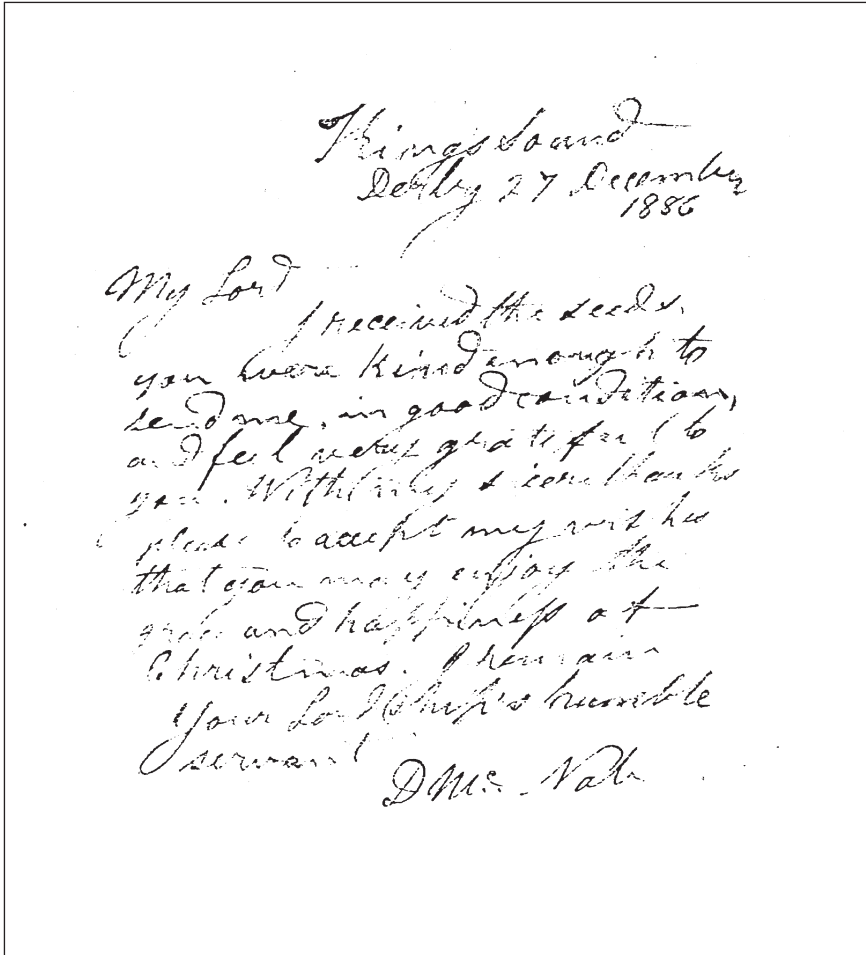 Kings Sound
Derby 27 December
1886
My Lord
I received the seeds,
you were kind enough to
send me, in good condition,
and feel very grateful to
you. With my sicere thanks
please to accept my wishes
that you may enjoy the
grace and happiness of
Christmas. I remain
Your Lordship's humble
servant
D Mc. Nab